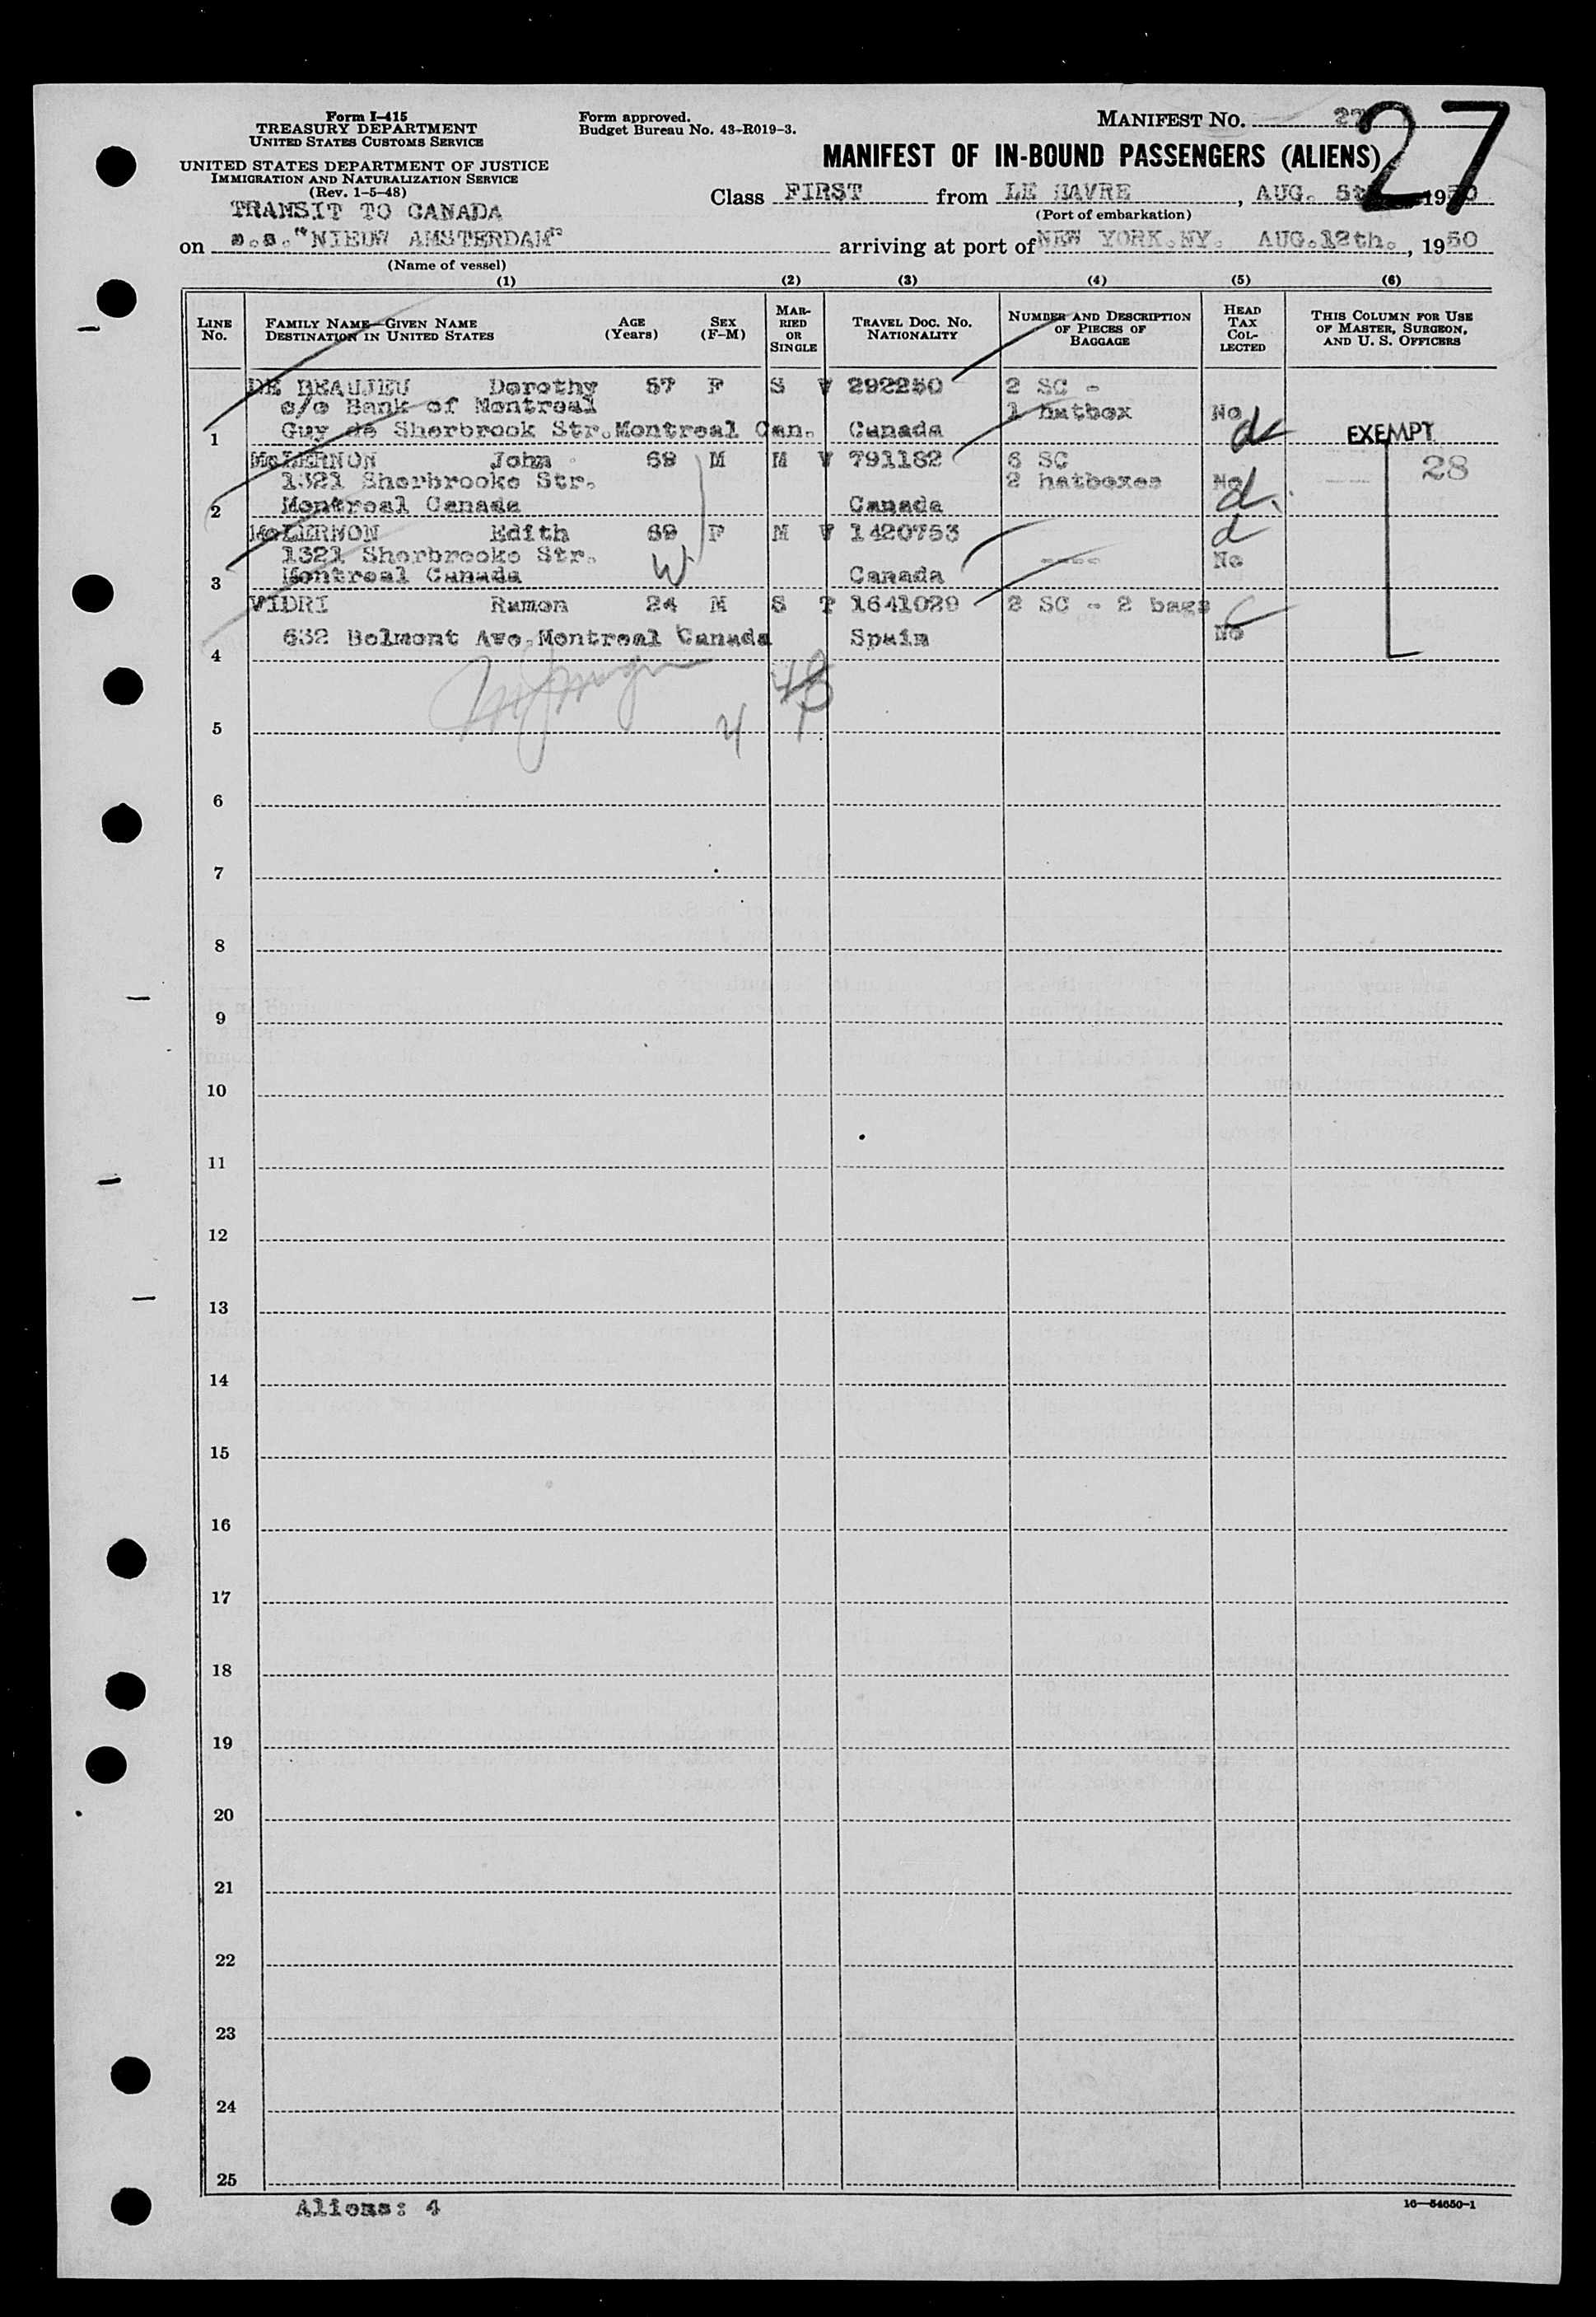 Form I-415
TREASURY DEPARTMENT
UNITED STATES CUSTOMS SERVICE
UNITED STATES DEPARTMENT OF JUSTICE
IMMIGRATION AND NATURALIZATION SERVICE
(Rev. 1-5-48)
Form approved.
Budget Bureau No. 43-R019-3.
MANIFEST No. 27
27
MANIFEST OF IN-BOUND PASSENGERS (ALIENS)
Class FIRST from LE HAVRE, AUG. 5th 1950
(Port of embarkation)
TRANSIT TO CANADA
on s.s."NIEUW AMSTERDAM" arriving at port of NEW YORK.NY. AUG.12th., 1950
(Name of vessel)
(1) (2) (3) (4) (5) (6)
LINE No. FAMILY NAME—GIVEN NAME DESTINATION IN UNITED STATES AGE (Years) SEX (F-M) MARRIED OR SINGLE TRAVEL DOC. NO. NATIONALITY NUMBER AND DESCRIPTION OF PIECES OF BAGGAGE HEAD TAX COLLECTED THIS COLUMN FOR USE OF MASTER, SURGEON, AND U. S. OFFICERS
DE BEAUJEU Dorothy 57 F S V 292250 2 SC -
c/o Bank of Montreal 1 hatbox No
1 Guy de Sherbrook Str.Montreal Can. Canada EXEMPT
McLERNON John 69 M M V 791182 6 SC 28
1321 Sherbrooke Str. 2 hatboxes No
2 Montreal Canada Canada
McLERNON Edith 69 F M V 1420753
1321 Sherbrooke Str. ---- No
3 Montreal Canada W Canada
VIDRI Ramon 24 M S T 1641029 2 SC - 2 bags
632 Belmont Ave.Montreal Canada Spain No
4
4
5
6
7
8
9
10
11
12
13
14
15
16
17
18
19
20
21
22
23
24
25
Aliens: 4
16—54650-1